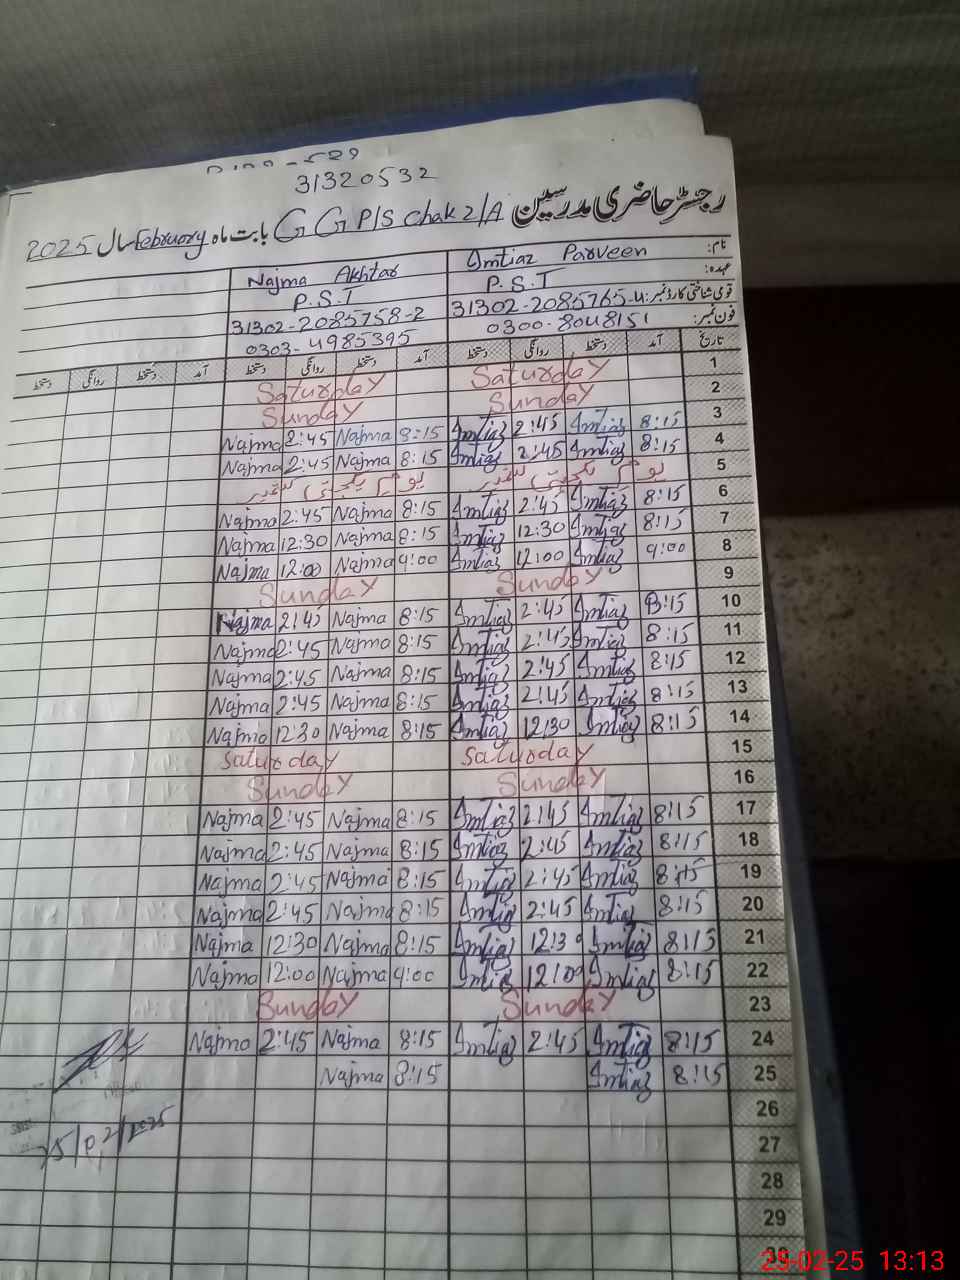 31320532
رجسٹر حاضری مدرسین GGP/S Chak 2/A بابت ماہ February سال 2025
نام: Imtiaz Parveen Najma Akhtar
عہدہ: P.S.T P.S.T
قومی شناختی کارڈ نمبر: 31302-2085765-4 31302-2085758-2
فون نمبر: 0300-8048151 0303-4985395
تاریخ آمد دستخط روانگی دستخط آمد دستخط روانگی دستخط آمد دستخط روانگی دستخط
1 Saturday Saturday
2 Sunday Sunday
3 8:15 Imtiaz 2:45 Imtiaz 8:15 Najma 2:45 Najma
4 8:15 Imtiaz 2:45 Imtiaz 8:15 Najma 2:45 Najma
5 یوم یکجہتی کشمیر یوم یکجہتی کشمیر
6 8:15 Imtiaz 2:45 Imtiaz 8:15 Najma 2:45 Najma
7 8:15 Imtiaz 12:30 Imtiaz 8:15 Najma 12:30 Najma
8 9:00 Imtiaz 12:00 Imtiaz 9:00 Najma 12:00 Najma
9 Sunday Sunday
10 8:15 Imtiaz 2:45 Imtiaz 8:15 Najma 2:45 Najma
11 8:15 Imtiaz 2:45 Imtiaz 8:15 Najma 2:45 Najma
12 8:15 Imtiaz 2:45 Imtiaz 8:15 Najma 2:45 Najma
13 8:15 Imtiaz 2:45 Imtiaz 8:15 Najma 2:45 Najma
14 8:15 Imtiaz 12:30 Imtiaz 8:15 Najma 12:30 Najma
15 Saturday Saturday
16 Sunday Sunday
17 8:15 Imtiaz 2:45 Imtiaz 8:15 Najma 2:45 Najma
18 8:15 Imtiaz 2:45 Imtiaz 8:15 Najma 2:45 Najma
19 8:15 Imtiaz 2:45 Imtiaz 8:15 Najma 2:45 Najma
20 8:15 Imtiaz 2:45 Imtiaz 8:15 Najma 2:45 Najma
21 8:15 Imtiaz 12:30 Imtiaz 8:15 Najma 12:30 Najma
22 8:15 Imtiaz 12:00 Imtiaz 9:00 Najma 12:00 Najma
23 Sunday Sunday
24 8:15 Imtiaz 2:45 Imtiaz 8:15 Najma 2:45 Najma
25 8:15 Imtiaz 8:15 Najma
26
27
28
29
25/02/2025
25-02-25 13:13